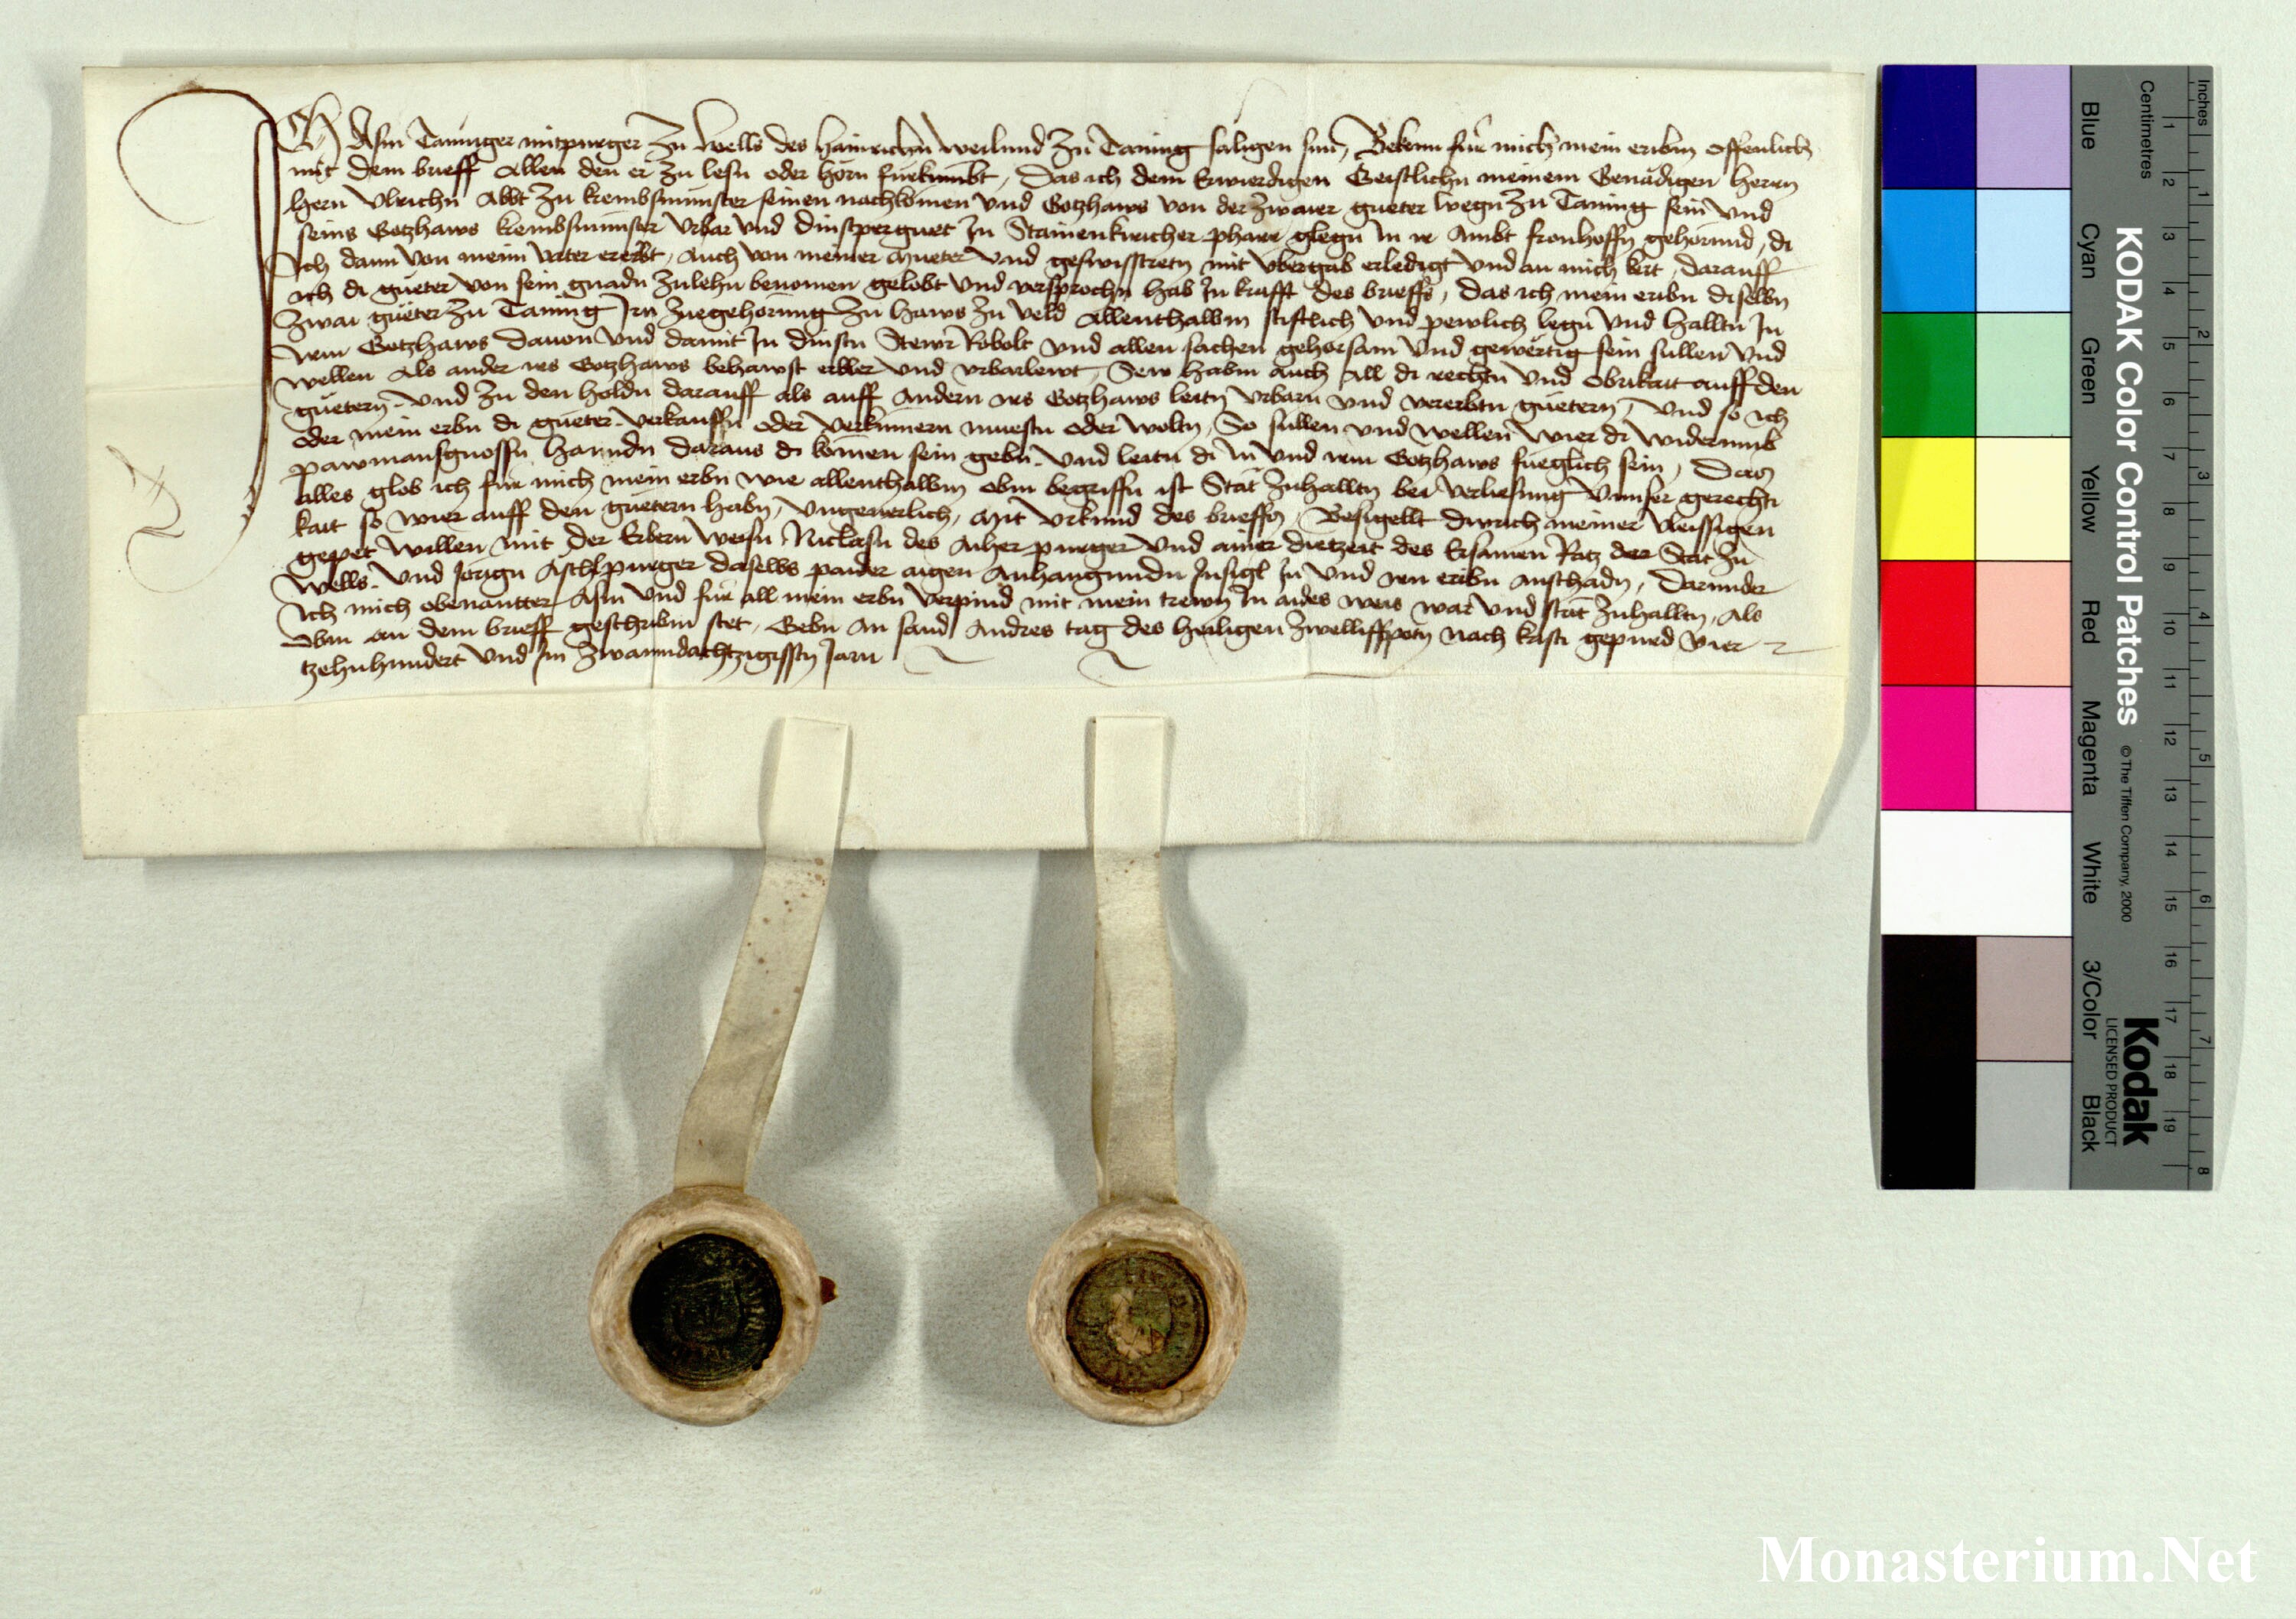 Ich Asm Taninger mitpurger zu Wells des Hainreichn weilund zu Taning saligen sun, Bekenn für mich mein eribm offenlich
mit dem brieff Allen den er zu lesn oder hörn fürkumbt, Das ich dem Erwierdigen Geistlichn meinem Genädigen herrn
hern Vlreichn Abbt zu krembsmünster seinen nachkömen vnd Gotzhaws von der zwaier güeter wegn zu Taning sein vnd
seins Gotzhaws krembsmünster Vrbar vnd dinstperguet In Stainenkiricher pharr glegn In ir Ambt fronhoffn gehörund, di
Ich dann von meim vater ererbt, Auch von meiner Mueter vnd geswisstretn mit vbergab erledigt vnd an mich kert, darauff
ich di güeter von sein gnadn zulehn benomen gelobt vnd versprochn hab In krafft des brieffs, das ich mein eribn diselbn
zwai güeter zu Taning Irn zuegehörung zu haws zu veld Allenthalbm stifftlich vnd pewlich legn vnd halltn In
irm Gotzhaws dauon vnd damit In dinstn Stewr Robolt vnd allen sachen gehorsam vnd gewërtig sein sullen vnd
wellen Als ander irs Gotzhaws behawst erber vnd vrbarlewt, Sew habm auch All di rechtn vnd Obrikait auff den
güetern vnd zu den holdn darauff als auff Andern irs Gotzhaws leitn Vrbarn vnd vererbtn güetern, Vnd so ich
oder mein erbn di güeter verkauffn oder verkümern muestn oder woltn, So sullen vnd wellen wier di widerumb
pawmansgnossn hanndn daraus di kömen sein gebn vnd leitn di In vnd irm Gotzhaws füeglich sein, Das
alles glob ich für mich mein erbn wie allenthalbm obm begriffn ist Stät zuhalltn bei verliesung vnnser gerechti
kait so wier auff den güetern habn, vngeuerlich, Mit vrkund des brieffs, Besigellt durich meiner vleissigen
gepet willen mit der Erbern weisn Niclasn des Aiher purger vnd ainer dietzeit des Ersamen Ratz der Stat zu
Wells vnd Jörign Aschlpurger daselbs paider aigen Anhangundn Insigl In vnd irn eribn anschadn, Darunder
Ich mich obenantter Asm vnd für all mein erbn verpind mit mein trewn In aides weis war vnd stät zuhalltn, Als
obm an dem brieff geschribm stet, Gebn An sand Andres tag des heiligen zwelliffpotn nach kristi gepurd vier
tzehnhundert vnd Im zwaiundachtzigisstn Jarn
KODAK Color Control Patches
© The Tiffen Company, 2000
Kodak
LICENSED PRODUCT
Blue Cyan Green Yellow Red Magenta White 3/Color Black
Inches 1 2 3 4 5 6 7 8
Centimetres 1 2 3 4 5 6 7 8 9 10 11 12 13 14 15 16 17 18 19
Monasterium.Net